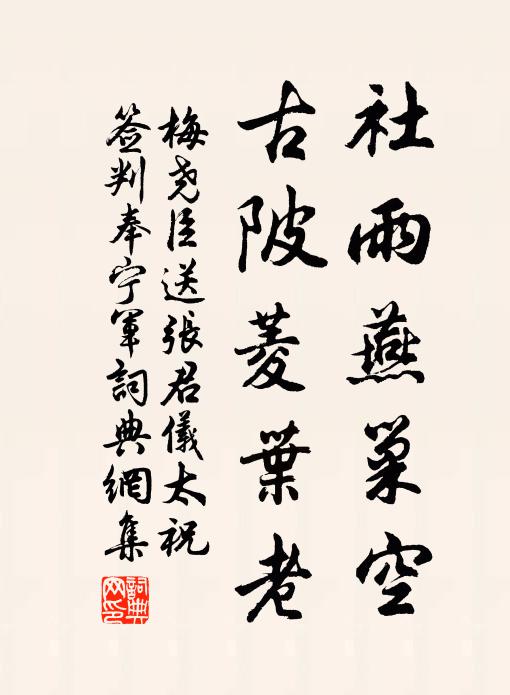 社雨燕巢空
古陂菱葉老
梅堯臣送張君儀太祝
簽判奉寧軍詞典網集
詞典網印